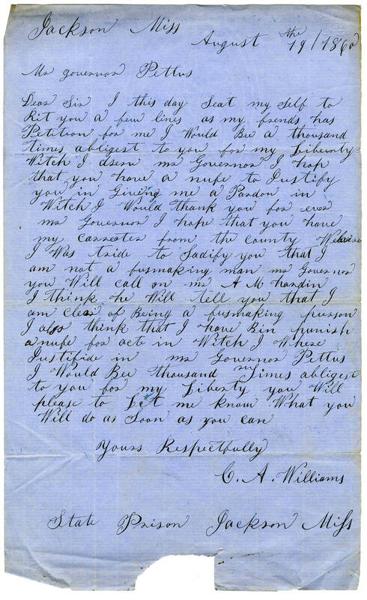 Jackson Miss
August the 19/1860
Mr governor Pettus
Dear Sir I this day Seat my Self to
Rit you a few lines as my frends has
Petition for me I Would Be a thousand
times abligest to you for my Liberuty
Witch I dsern mr Governor I hop
that you have a nufe to Justify
you in Giveing me a Pardon in
Witch I Would thank you for ever
mr Governor I hope that you have
my carrecter from the county Where
I Was tride to Sadify you that I
am not a fusmaking man mr Governor
you Will call on mr A M hardin
I think he Will tell you that I
am clear of Being a fusmaking person
I also think that I have Bin punish
a nufe for act in Witch I Where
Justifide in mr Governor Pettus
I Would Bee thousand Times abligest
to you for my Liberty you Will
please to Let me know What you
Will do as Soon as you can
Yours Respectfully
C. A. Williams
State Prison Jackson Miss